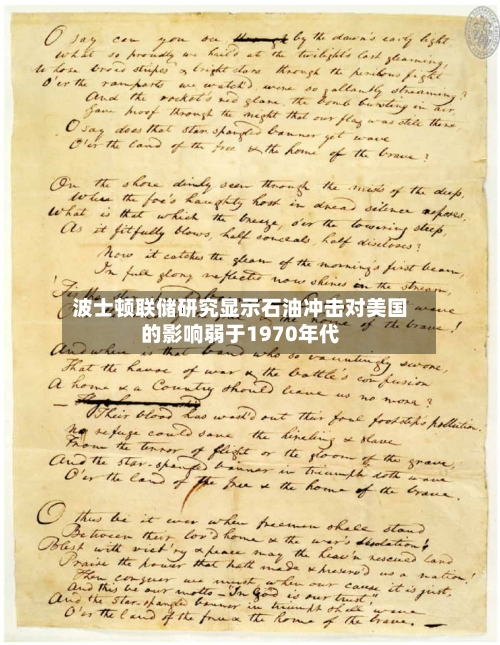 O say can you see through by the dawn's early light,
What so proudly we hail'd at the twilight's last gleaming,
Whose broad stripes & bright stars through the perilous fight
O'er the ramparts we watch'd, were so gallantly streaming?
And the rocket's red glare, the bomb bursting in air,
Gave proof through the night that our flag was still there
O say does that star-spangled banner yet wave
O'er the land of the free & the home of the brave?
On the shore dimly seen through the mists of the deep,
Where the foe's haughty host in dread silence reposes,
What is that which the breeze, o'er the towering steep,
As it fitfully blows, half conceals, half discloses?
Now it catches the gleam of the morning's first beam,
In full glory reflected now shines in the stream,
波士顿联储研究显示石油冲击对美国
的影响弱于1970年代
the home of the brave!
And where is that band who so vauntingly swore,
That the havoc of war & the battle's confusion
A home & a Country should leave us no more?
Their blood has wash'd out their foul footstep's pollution.
No refuge could save the hireling & slave
From the terror of flight or the gloom of the grave,
And the star-spangled banner in triumph doth wave
O'er the land of the free & the home of the brave.
O thus be it ever when freemen shall stand
Between their lov'd home & the war's desolation!
Blest with vict'ry & peace may the heav'n rescued land
Praise the power that hath made & preserv'd us a nation!
Then conquer we must, when our cause it is just,
And this be our motto - "In God is our trust,"
And the star-spangled banner in triumph shall wave
O'er the land of the free & the home of the brave. -